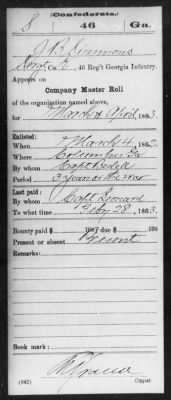 Confederate.
S 46 Ga.
J B Simmons
Serg't, Co. E, 46 Reg't Georgia Infantry.
Appears on
Company Muster Roll
of the organization named above,
for March & April, 1863.
Enlisted:
When March 4, 186
Where Columbus Ga
By whom Capt
Period 3 years or the war
Last paid:
By whom Capt Leonard
To what time Feby 28, 1863.
Bounty paid $ 100; due $ 186
Present or absent Present
Remarks:
Book mark:
(642) Copyist.